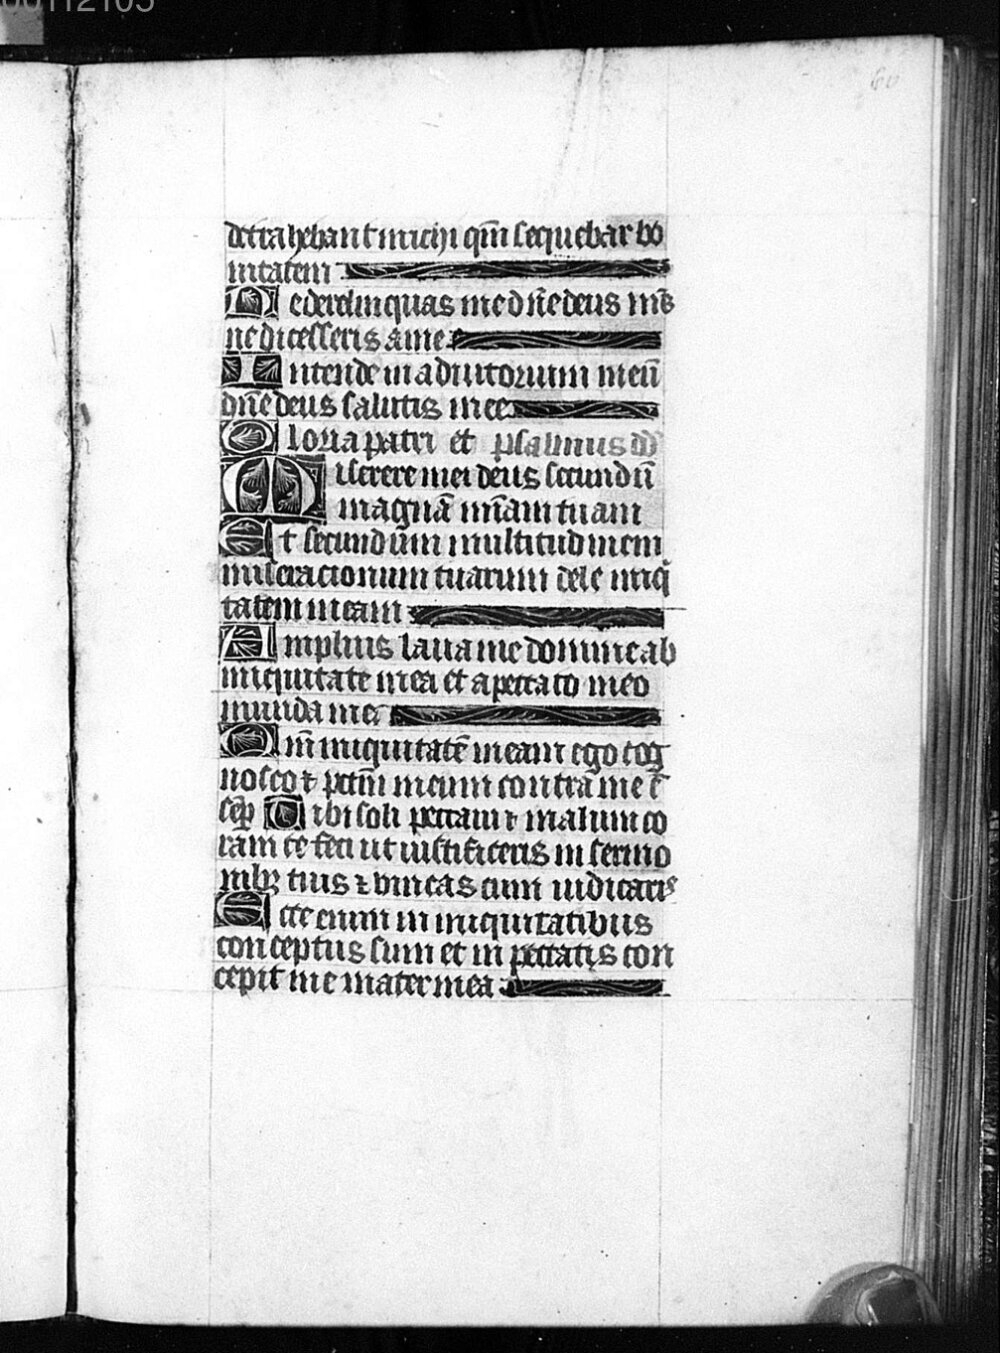 detrahebant michi qm̄ sequebar bo
nitatem
Ne derelinquas me dn̄e deus m̄s
ne dicesseris a me
Intende in adiutorium meū
dn̄e deus salutis mee
Gloria patri et psalmus dd̄
Miserere mei deus secundū
magnā mīam tuam
Et secundum multitudinem
miseracionum tuarum dele iniq̄
tatem meam
Amplius laua me domine ab
iniquitate mea et a peccato meo
munda me
Qm̄ iniquitatē meam ego cog
nosco ⁊ pctm̄ meum contra me ē
sēp Tibi soli peccaui ⁊ malum co
ram te feci ut iustificeris in sermo
nibꝫ tuis ⁊ vincas cum iudicaris
Ecce enim in iniquitatibus
conceptus sum et in peccatis con
cepit me mater mea